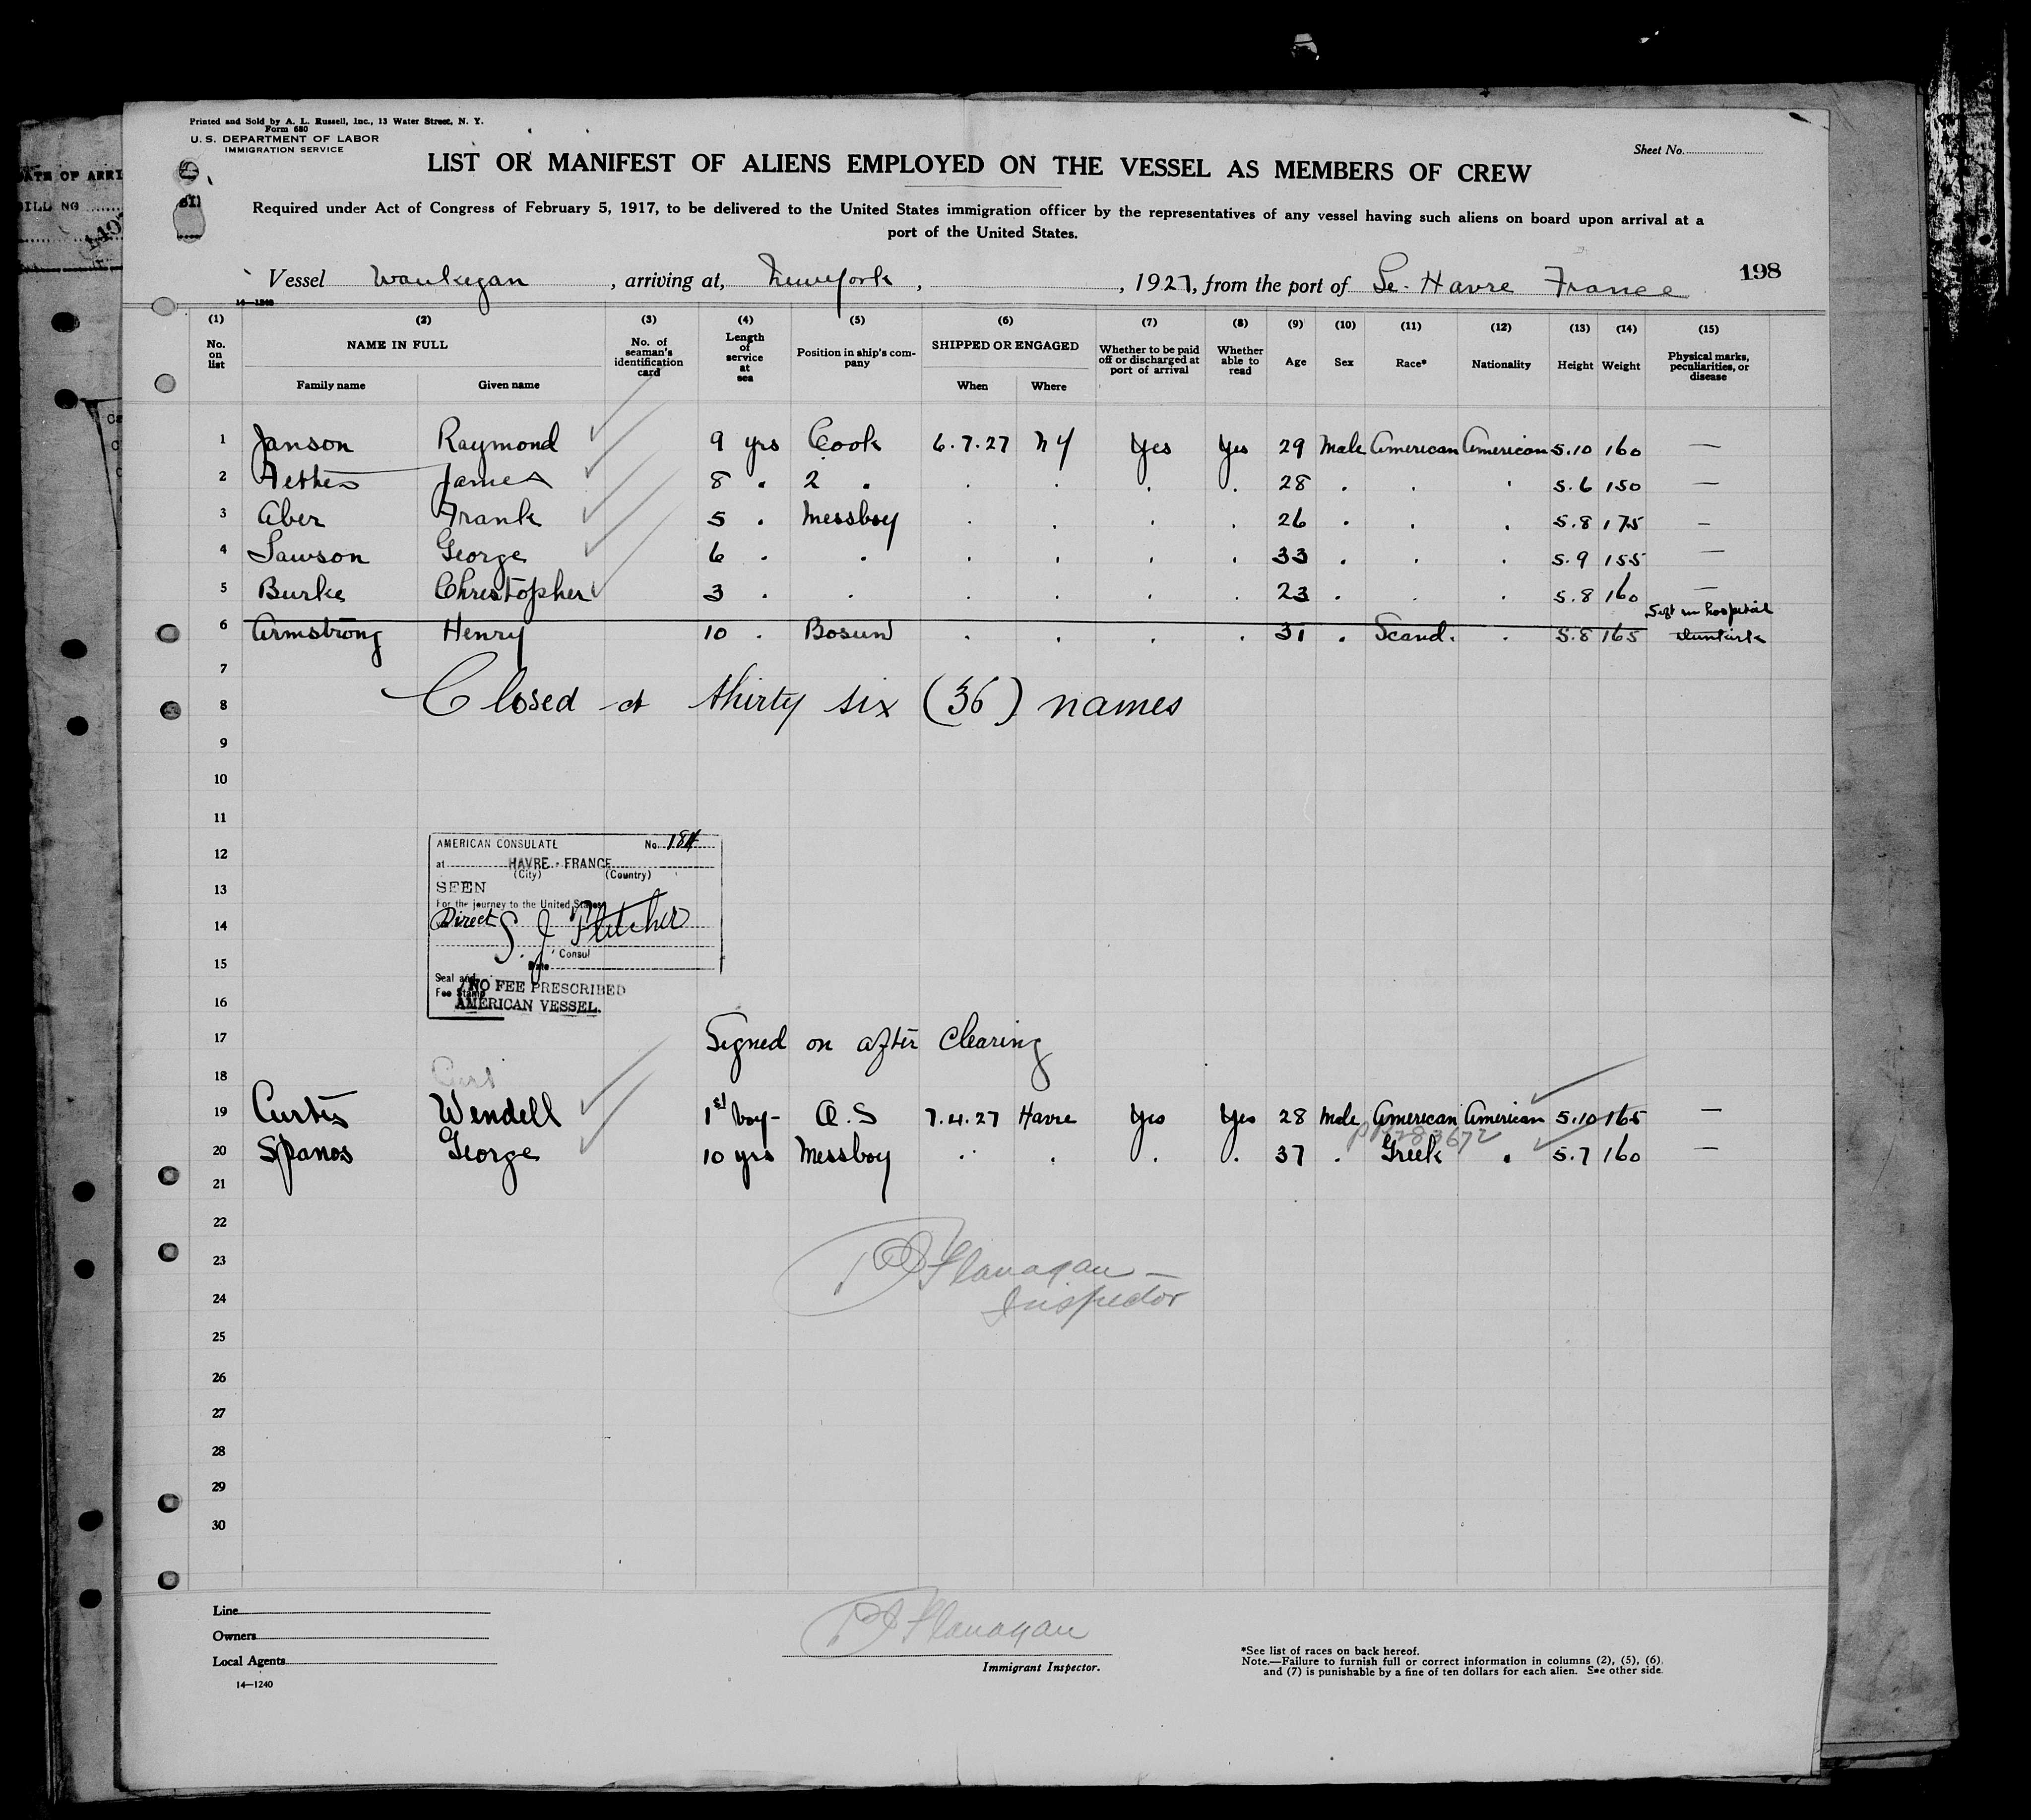 Printed and Sold by A. L. Russell, Inc., 13 Water Street, N. Y.
Form 680
U. S. DEPARTMENT OF LABOR
IMMIGRATION SERVICE
Sheet No.
LIST OR MANIFEST OF ALIENS EMPLOYED ON THE VESSEL AS MEMBERS OF CREW
Required under Act of Congress of February 5, 1917, to be delivered to the United States immigration officer by the representatives of any vessel having such aliens on board upon arrival at a
port of the United States.
Vessel Waukegan, arriving at, New York, , 1927, from the port of Le Havre France 198
(1) (2) (3) (4) (5) (6) (7) (8) (9) (10) (11) (12) (13) (14) (15)
No. on list NAME IN FULL Family name Given name No. of seaman's identification card Length of service at sea Position in ship's company SHIPPED OR ENGAGED When Where Whether to be paid off or discharged at port of arrival Whether able to read Age Sex Race* Nationality Height Weight Physical marks, peculiarities, or disease
1 Janson Raymond 9 yrs Cook 6.7.27 NY Yes Yes 29 Male American American 5.10 160 —
2 James 8 . 2 . . . . . 28 . . . 5.6 150 —
3 Aber Frank 5 . Messboy . . . . 26 . . . 5.8 175 —
4 Lawson George 6 . . . . . . 33 . . . 5.9 155 —
5 Burke Christopher 3 . . . . . . 23 . . . 5.8 160 —
6 Armstrong Henry 10 . Bosun . . . . 31 . Scand. . 5.8 165 Left in hospital Dunkirk
7
8 Closed at thirty six (36) names
9
10
11
12
13
14
15
16
AMERICAN CONSULATE No. 184
at HAVRE - FRANCE
(City) (Country)
SEEN
For the journey to the United States
Direct S. J. Fletcher
Consul
Date
Seal and
Fee Stamp
NO FEE PRESCRIBED
AMERICAN VESSEL.
17 Signed on after clearing
18 Curt
19 Curtis Wendell 1st voy- O.S 7.4.27 Havre Yes Yes 28 Male American American 5.10 165 —
20 Spanos George 10 yrs Messboy . . . . 37 . Greek . 5.7 160 —
21
22
23 Flanagan —
24 Inspector
25
26
27
28
29
30
Line
Owners
Local Agents
14—1240
Flanagan
Immigrant Inspector.
*See list of races on back hereof.
Note.—Failure to furnish full or correct information in columns (2), (5), (6),
and (7) is punishable by a fine of ten dollars for each alien. See other side.